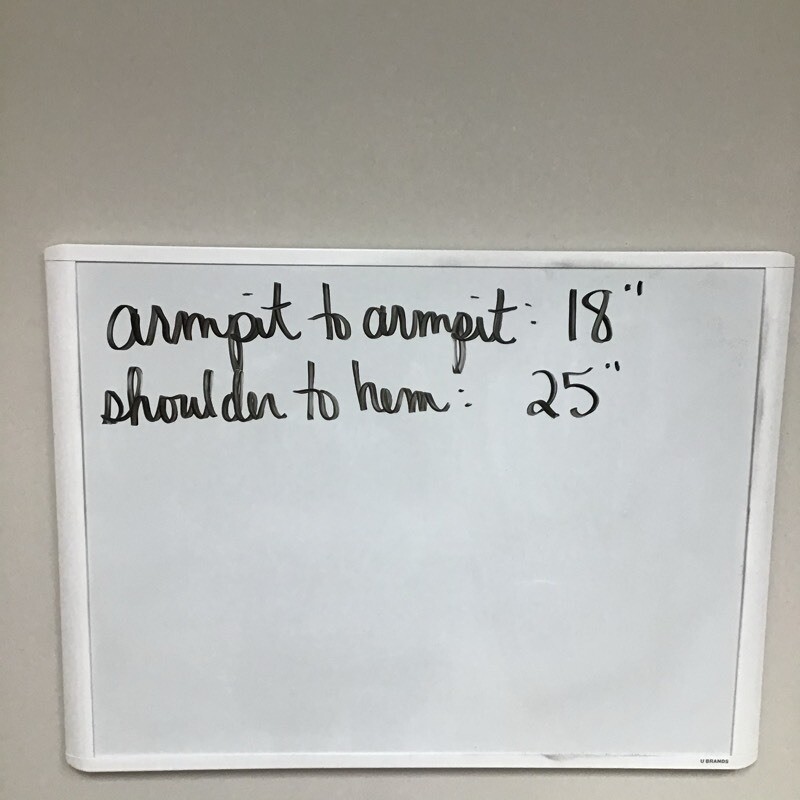 armpit to armpit: 18"
shoulder to hem: 25"
U BRANDS